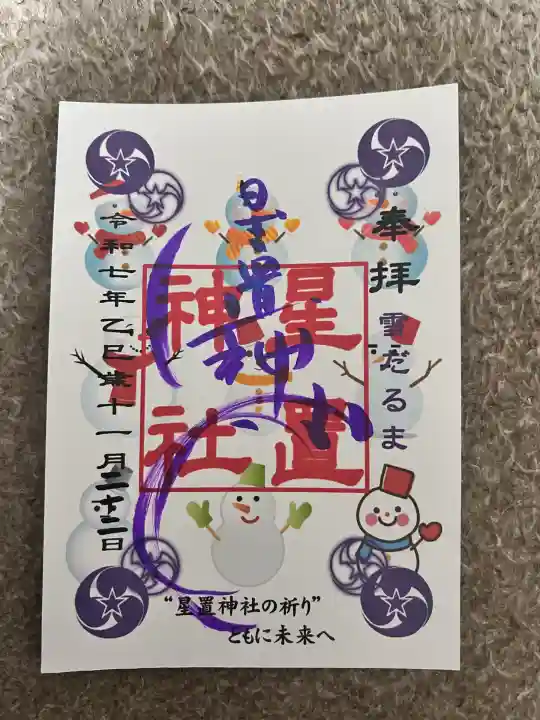 奉拝 雪だるま
星置神社
星置
神社
令和七年乙巳歳十一月二十二日
“星置神社の祈り”
ともに未来へ